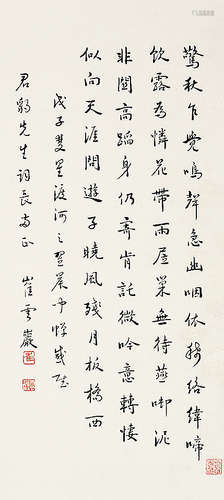 驚秋乍覺鳴聲急幽咽休將絡緯啼
飲露為憐花帶雨居巢無待燕啣泥
非關高蹈身仍寄肯託微吟意轉悽
似向天涯問遊子曉風殘月板橋西
戊子雙星渡河之翌晨聞蟬感賦
君豹先生詞長兩正
崔雲巖